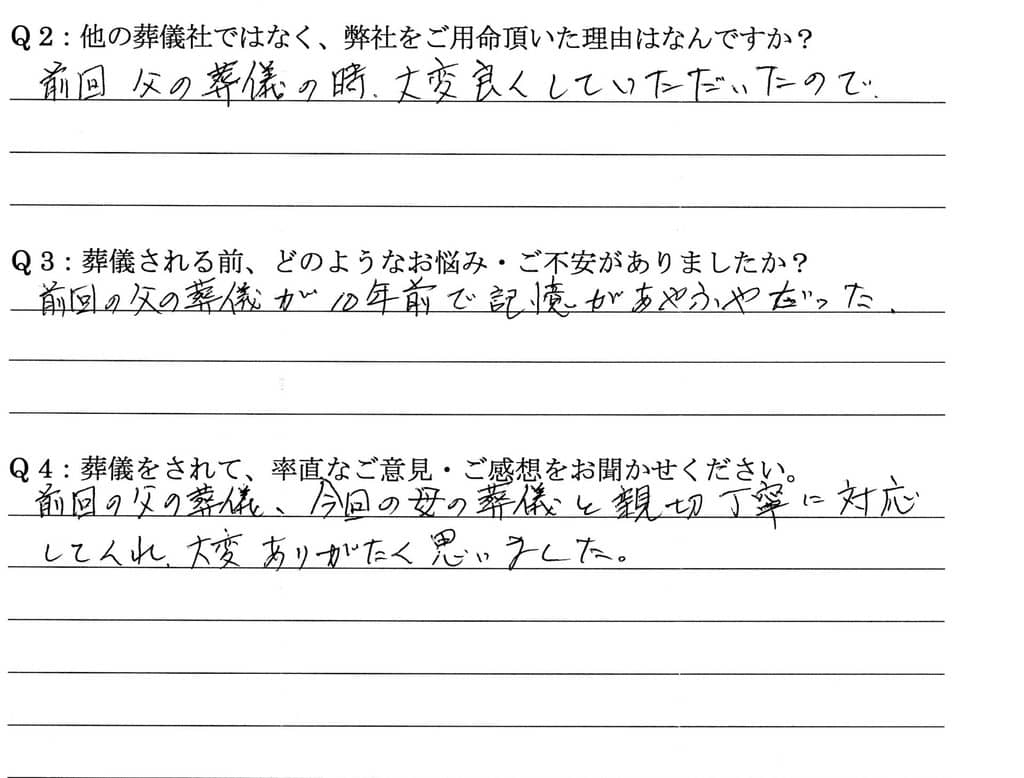 Q2：他の葬儀社ではなく、弊社をご用命頂いた理由はなんですか？
前回 父の葬儀の時、大変良くしていただいたので、
Q3：葬儀される前、どのようなお悩み・ご不安がありましたか？
前回の父の葬儀が10年前で記憶があやふやだった、
Q4：葬儀をされて、率直なご意見・ご感想をお聞かせください。
前回の父の葬儀、今回の母の葬儀と親切丁寧に対応
してくれ、大変ありがたく思いました。